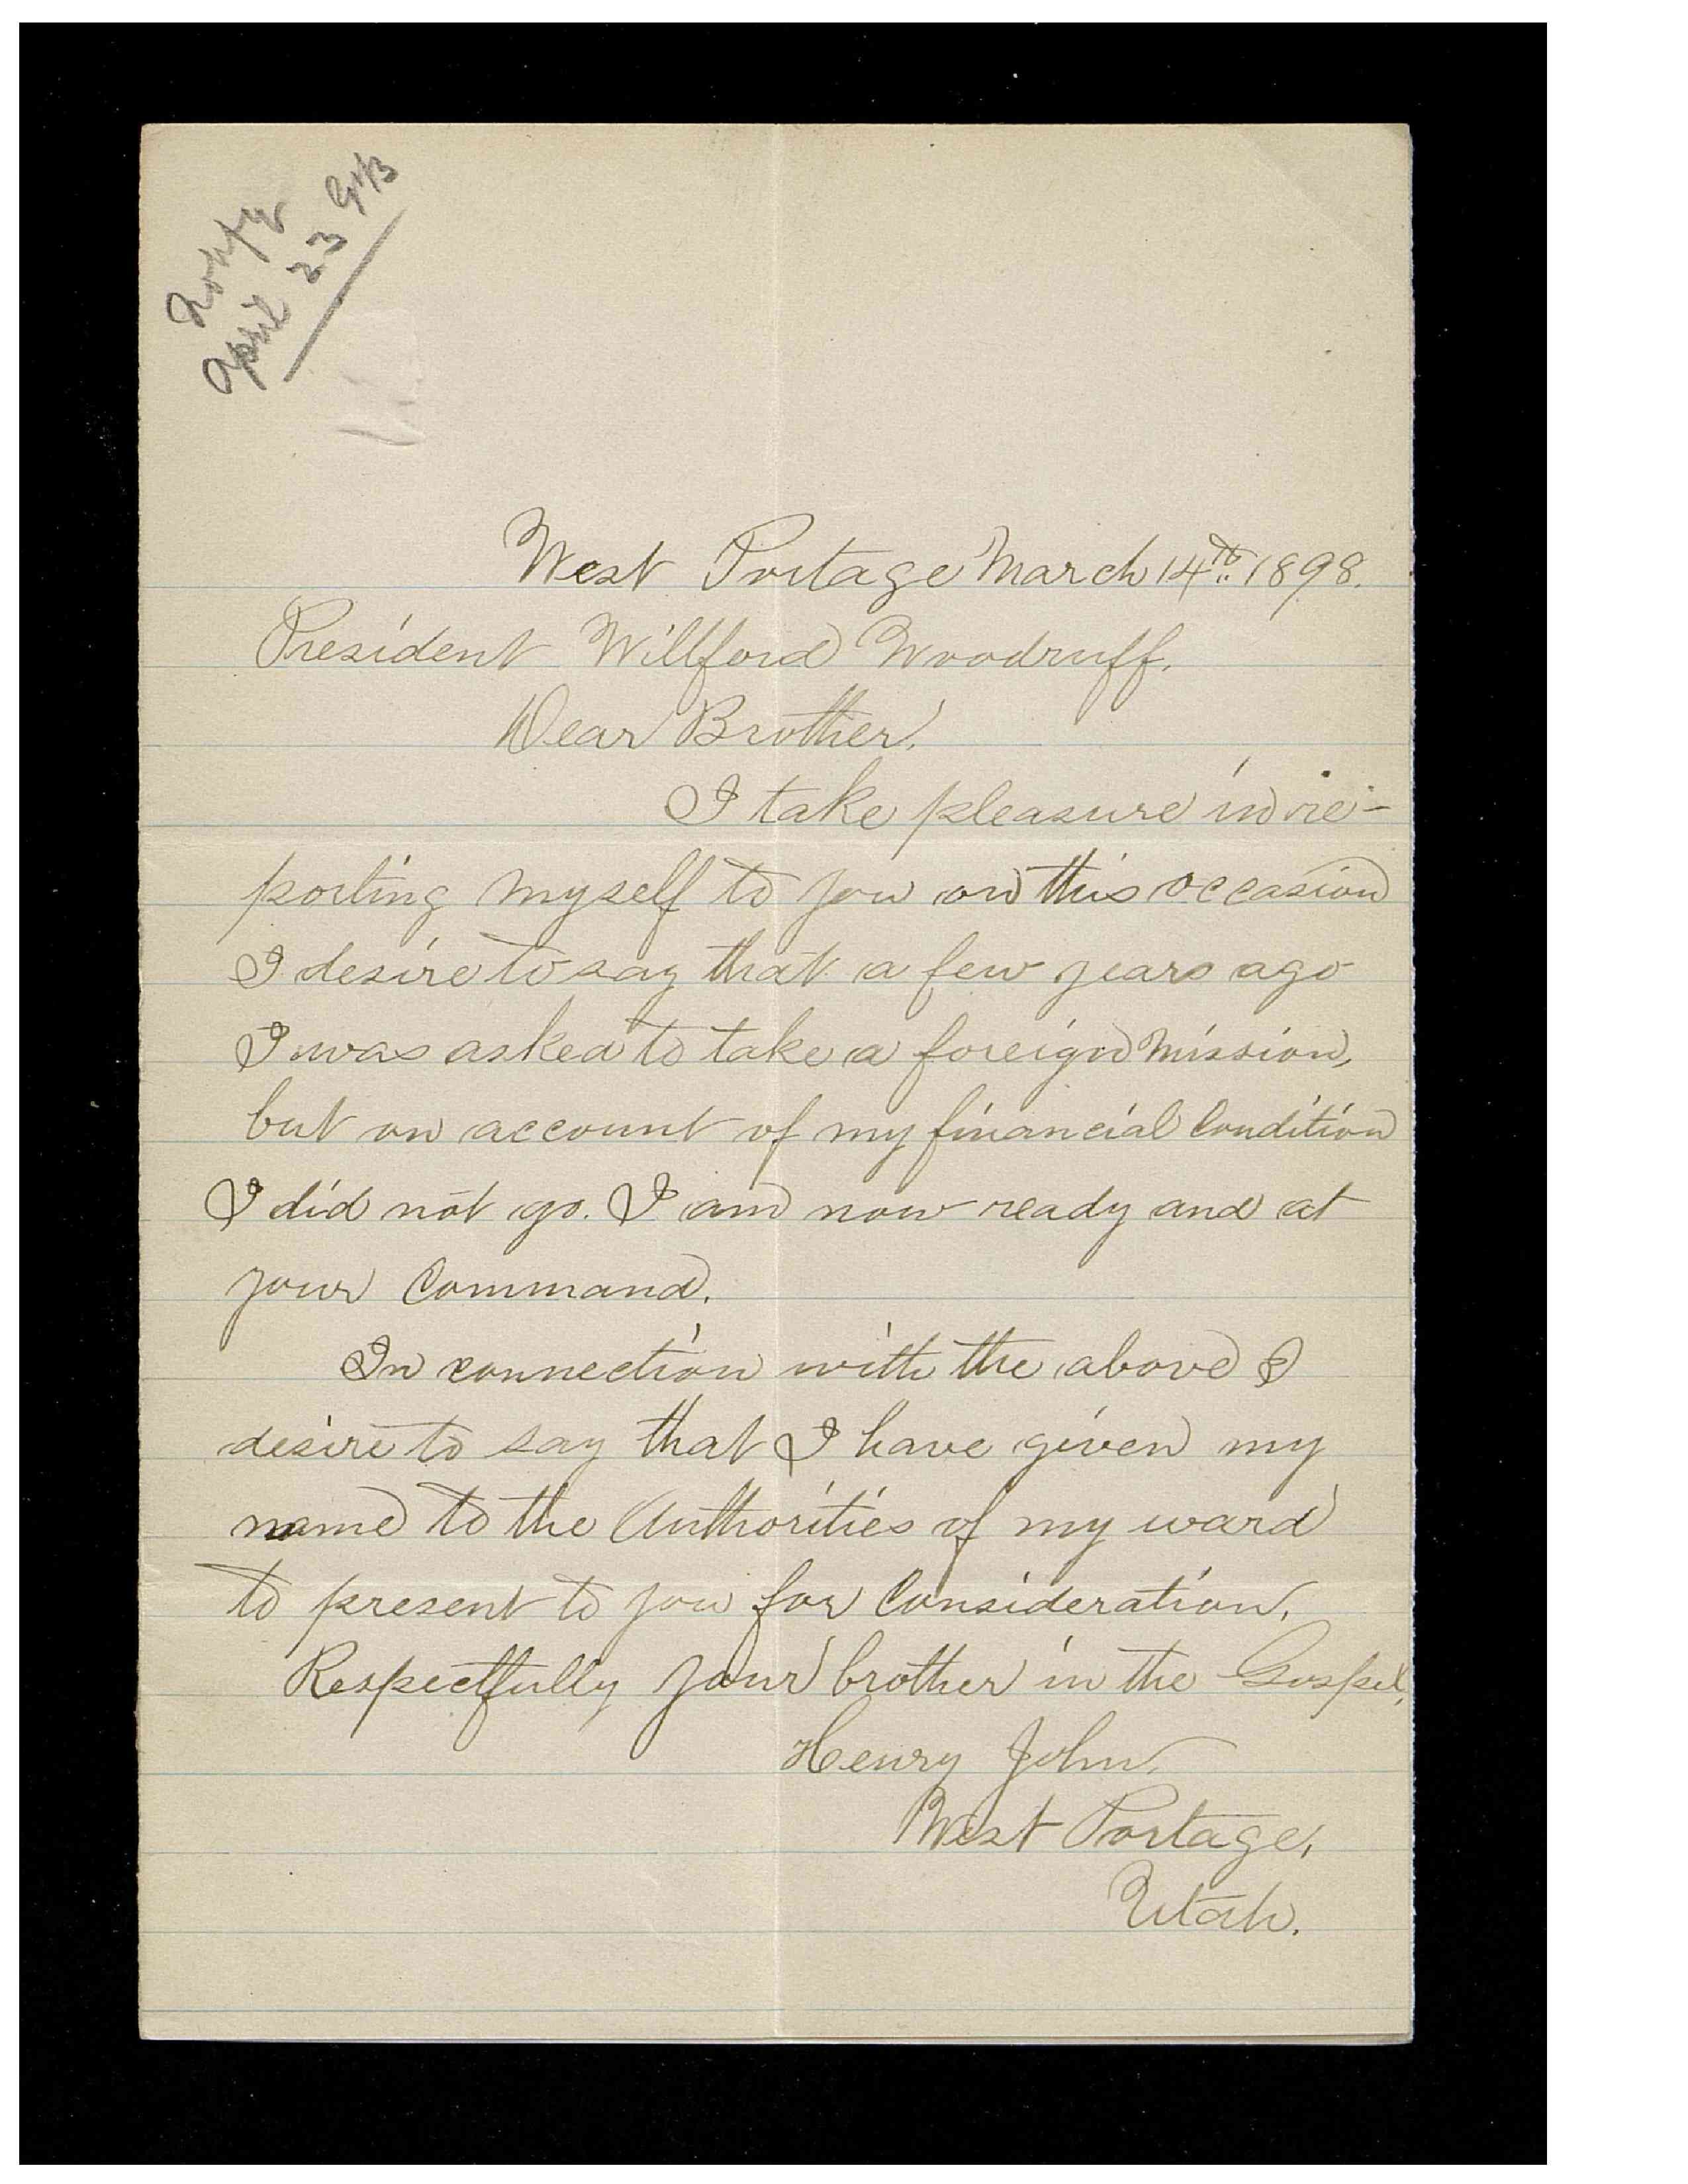 April 23
West Portage March 14th 1898.
President Willford Woodruff.
Dear Brother.
I take pleasure in re-
porting myself to you on this occasion
I desire to say that a few years ago
I was asked to take a foreign mission,
but on account of my financial Condition
I did not go. I am now ready and at
your Command.
In connection with the above I
desire to say that I have given my
name to the Authorities of my ward
to present to you for Consideration.
Respectfully your brother in the Gospel,
Henry John,
West Portage,
Utah.